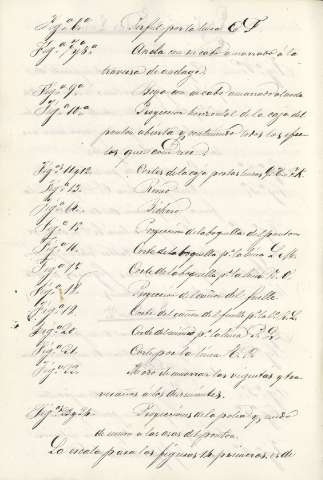 Fig.ª 6.ª Perfil por la linea E F
Fig.ªs 7.ª y 8.ª Ancla con su cabo amarrado á la
traversa de anclage.
Fig.ª 9.ª Boya con su cabo amarrado
Fig.ª 10.ª Proyeccion horizontal de la caja del
ponton abierta y conteniendo todos los efec-
tos que conduce.
Fig.ªs 11 y 12. Cortes de la caja por las lineas G. H. I K.
Fig.ª 13. Remo
Fig.ª 14. Bichero
Fig.ª 15. Proyeccion de la boquilla del ponton
Fig.ª 16. Corte de la boquilla p.r la linea L. M.
Fig.ª 17. Corte de la boquilla p.r la linea N. O
Fig.ª 18. Proyeccion del cañon del fuelle
Fig.ª 19. Corte del cañon del fuelle p.r la
Fig.ª 20. Corte del mismo p.r la linea P. Q.
Fig.ª 21. Corte por la linea
Fig.ª 22. Modo de amarrar las viguetas y tra-
vesaños á los durmientes.
Fig.ªs 23 y 24. Proyecciones de la polea y modo
de unirse á las asas del ponton.
La escala para las figuras 14 primeras, es de